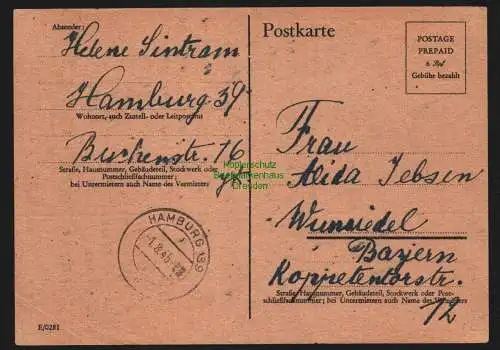 Absender:
Helene Sintram
Hamburg 39
Wohnort, auch Zustell- oder Leitpostamt
16
Straße, Hausnummer, Gebäudeteil, Stockwerk oder
Postschließfachnummer;
bei Untermietern auch Name des Vermieters
HAMBURG 39
E/0281
Postkarte
POSTAGE
PREPAID
6 Pf
Gebühr bezahlt
Frau
Alida Jebsen
Wunsiedel
Bayern
Koppetentorstr.
Straße, Hausnummer, Gebäudeteil, Stockwerk oder Post-
schließfachnummer; bei Untermietern auch Name des Vermieters
12
Kopierschutz
briefmarkenhaus
Dresden